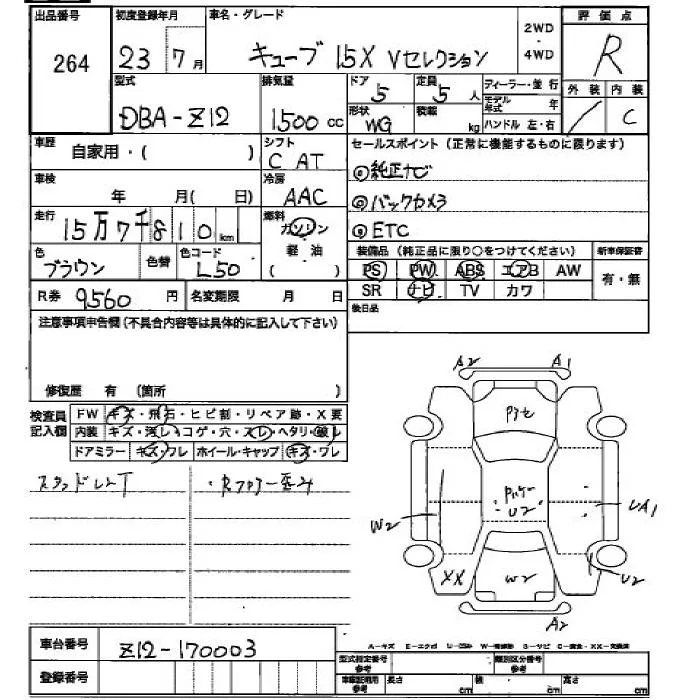 出品番号 初度登録年月 車名・グレード 評価点
264 23 7月 キューブ 15X Vセレクション 2WD・4WD R
型式 排気量 ドア 定員 ディーラー・並行 外装 内装
DBA-Z12 1500cc 5 5人 モデル年式 年 / C
形状 積載 ハンドル 左・右
WG kg
車歴 自家用・( ) シフト C AT セールスポイント(正常に機能するものに限ります)
車検 年 月( 日) 冷房 AAC ◎純正ナビ
走行 15万7千810km 燃料 ガソリン ◎バックカメラ
軽油 ( ) ◎ETC
色 ブラウン 色替 色コード L50 装備品(純正品に限り○をつけてください) 新車保証書
PS PW ABS エアB AW 有・無
R券 9560円 名変期限 月 日 SR ナビ TV カワ
注意事項申告欄(不具合内容等は具体的に記入して下さい) 後日品
修復歴 有 (箇所 )
検査員記入欄 FW キズ・飛石・ヒビ割・リペア跡・X要
内装 キズ・汚レ・コゲ・穴・スレ・ヘタリ・破レ
ドアミラー キズ・ワレ ホイール・キャップ キズ・ワレ
A2 A1
W2 U2 UA1
XX W2 U2
A2
車台番号 Z12-170003
A-キズ E-エクボ U-凹ミ W-補修跡 S-サビ C-腐食・XX-交換済
登録番号 型式指定番号参考 類別区分番号参考
車庫証明用参考 長さ cm 幅 cm 高さ cm